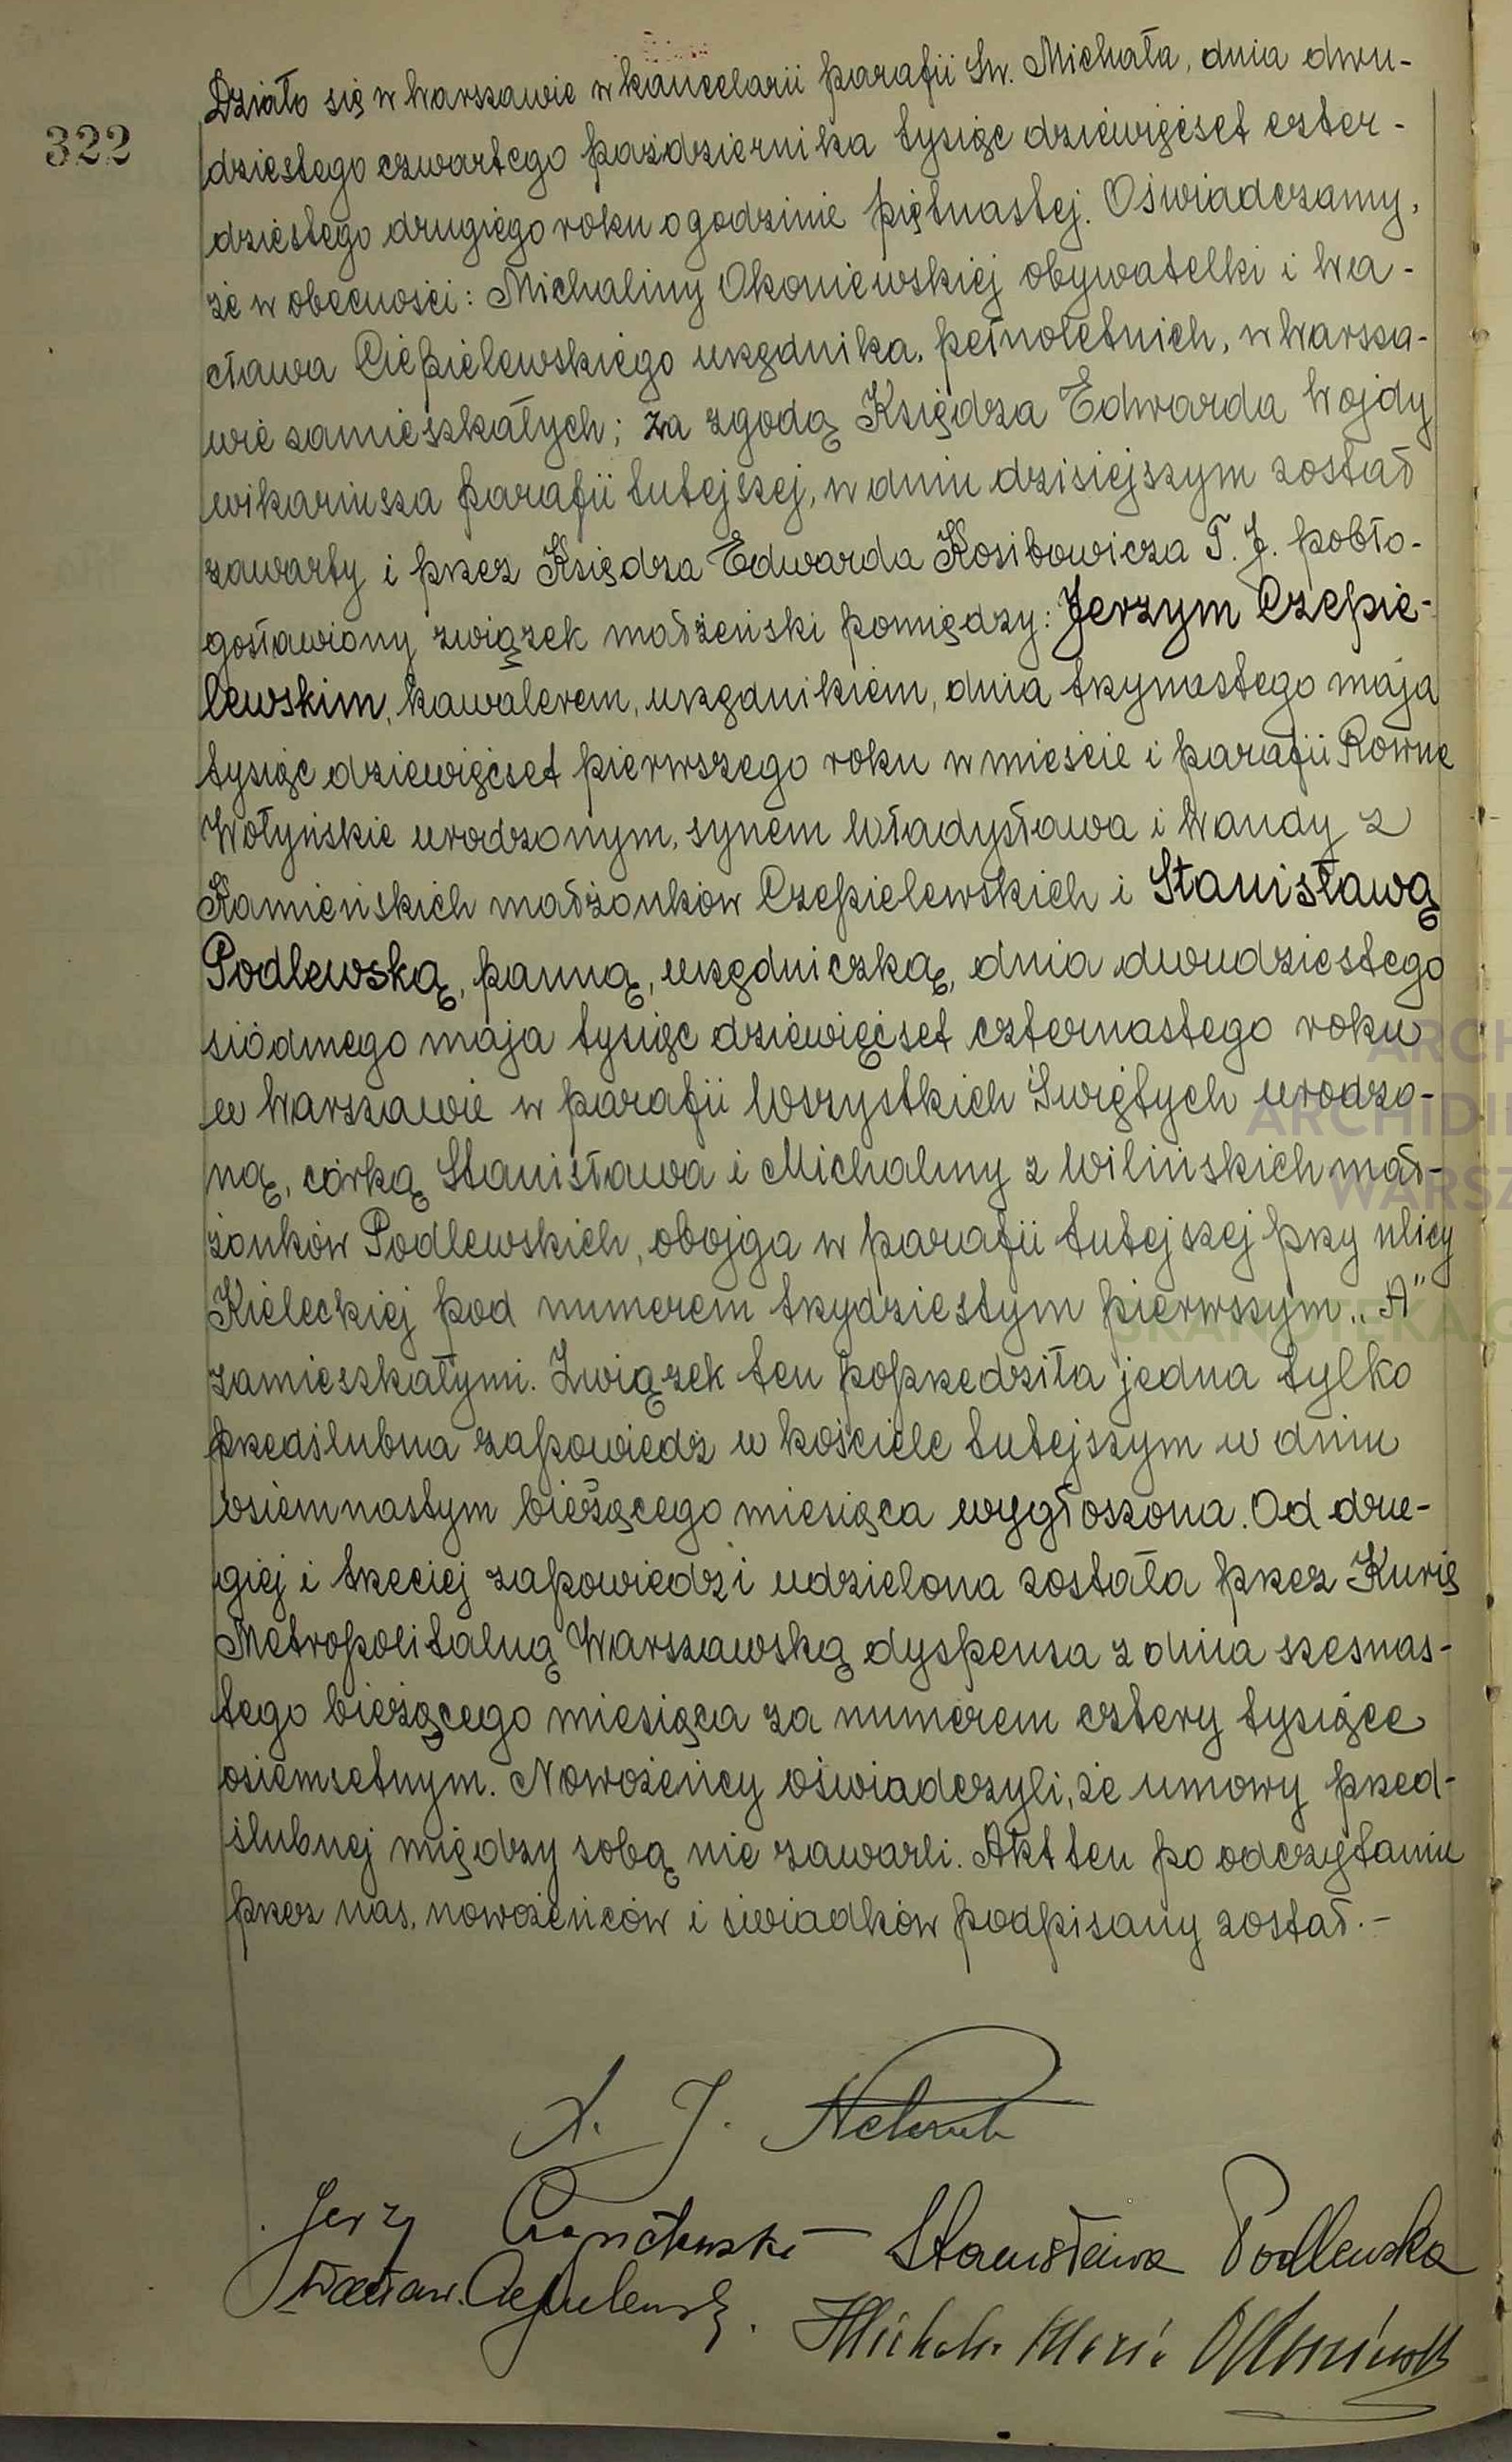 322
Działo się w Warszawie w kancelarii parafii Św. Michała, dnia dwu-
dziestego czwartego października tysiąc dziewięćset czter-
dziestego drugiego roku o godzinie piętnastej. Oświadczamy,
że w obecności: Michaliny Okoniewskiej obywatelki i Wa-
cława Ciepielewskiego urzędnika, pełnoletnich, w Warsza-
wie zamieszkałych; za zgodą Księdza Edwarda Wojdy
wikariusza parafii tutejszej, w dniu dzisiejszym został
zawarty i przez Księdza Edwarda Kosibowicza T. J. pobło-
gosławiony związek małżeński pomiędzy: Jerzym Czepie-
lewskim, kawalerem, urzędnikiem, dnia trzynastego maja
tysiąc dziewięćset pierwszego roku w mieście i parafii Równe
Wołyńskie urodzonym, synem Władysława i Wandy z
Kamieńskich małżonków Czepielewskich i Stanisławą
Podlewską, panną, urzędniczką, dnia dwudziestego
siódmego maja tysiąc dziewięćset czternastego roku
w Warszawie w parafii Wszystkich Świętych urodzo-
ną, córką Stanisława i Michaliny z Wilińskich mał-
żonków Podlewskich, obojga w parafii tutejszej przy ulicy
Kieleckiej pod numerem trzydziestym pierwszym „A"
zamieszkałymi. Związek ten poprzedziła jedna tylko
przedślubna zapowiedź w kościele tutejszym w dniu
osiemnastym bieżącego miesiąca wygłoszona. Od dru-
giej i trzeciej zapowiedzi udzielona została przez Kurię
Metropolitalną Warszawską dyspensa z dnia szesnas-
tego bieżącego miesiąca za numerem cztery tysiące
osiemsetnym. Nowożeńcy oświadczyli, że umowy przed-
ślubnej między sobą nie zawarli. Akt ten po odczytaniu
przez nas, nowożeńców i świadków podpisany został.-
X. J.
Jerzy Czepielewski – Stanisława Podlewska
Wacław Ciepielewski. Michalina Maria Okoniewska
ARCH
ARCHIDI
WARSZ
SKANOTEKA.G